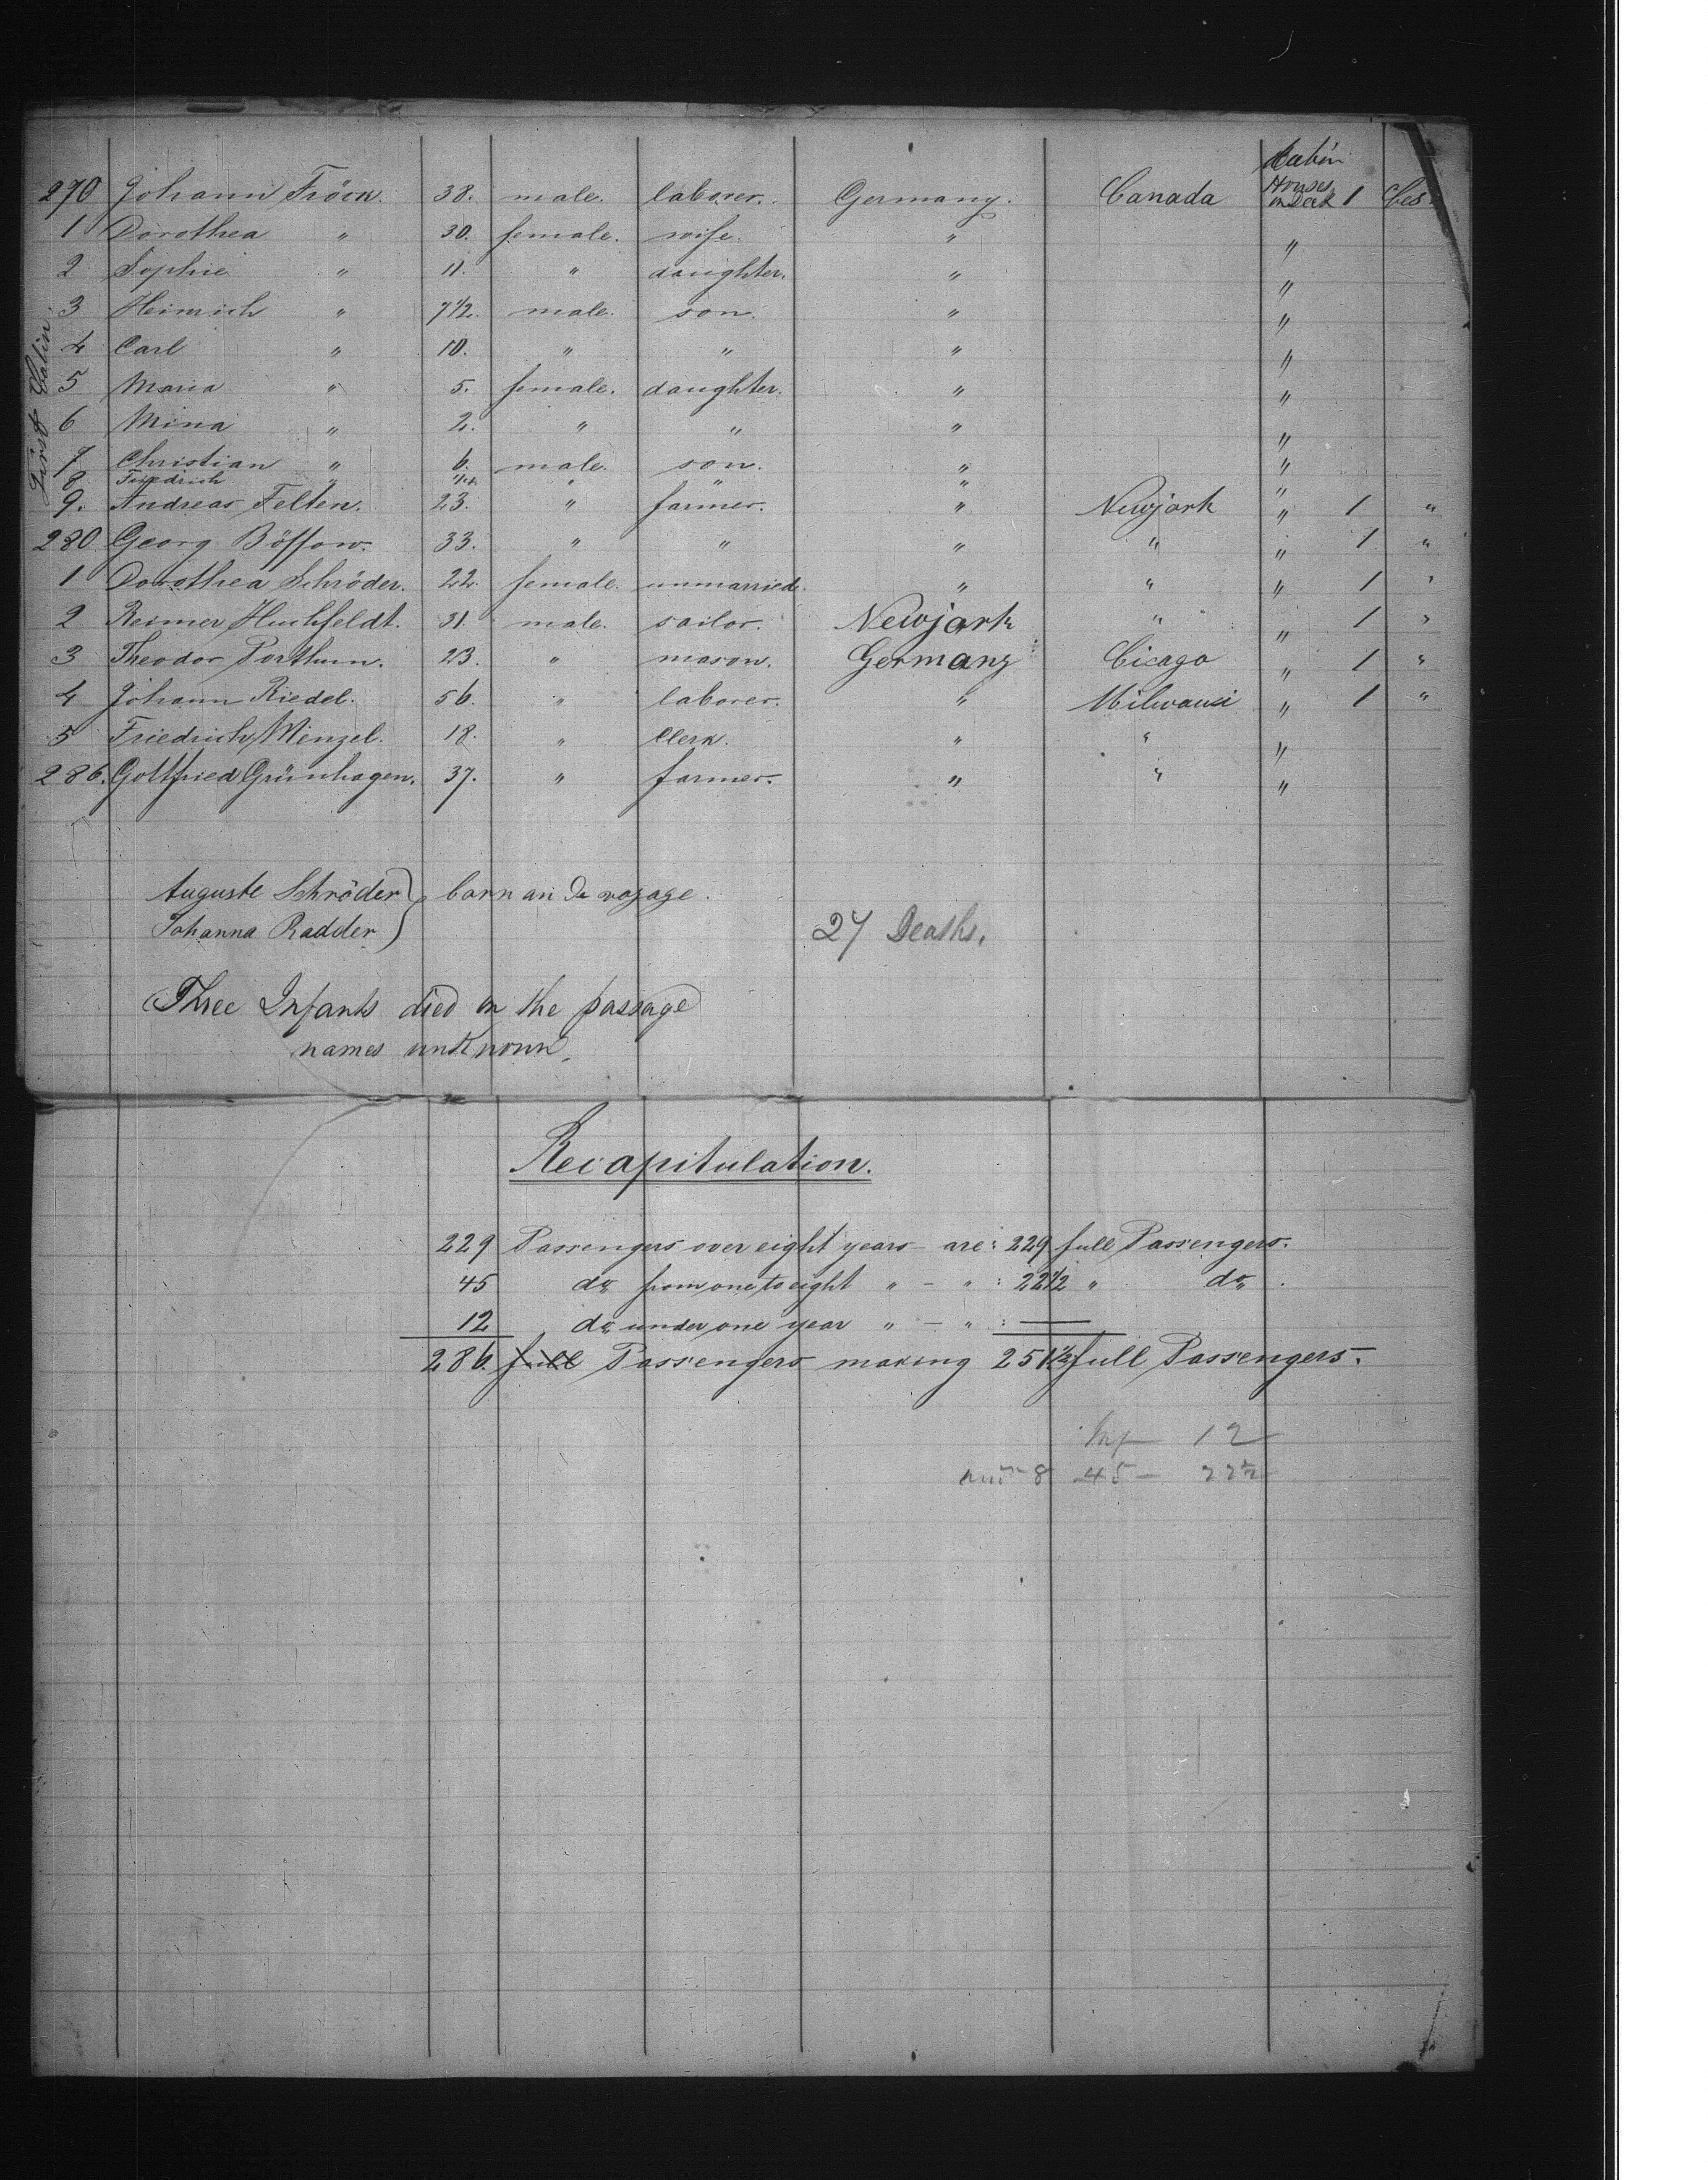 Cabin
270 Johann Fröck. 38. male. laborer. Germany. Canada Houses on Deck 1 Ces
1 Dorothea " 30. female. wife. " "
2 Sophie " 11. " daughter. " "
3 Heinrich " 7 1/2. male. son. " "
4 Carl " 10. " " " "
5 Maria " 5. female. daughter. " "
6 Mina " 2. " " " "
7 Christian " 6. male. son. " "
8 Friedrich " " " " "
9. Andreas Felten. 23. " farmer. " Newjork " 1 "
280 Georg Bössow. 33. " " " " " 1 "
1 Dorothea Schröder. 22. female. unmarried. " " " 1 "
2 Reimer Huchfeldt. 31. male. sailor. Newjork " " 1 "
3 Theodor Porthun. 23. " mason. Germany Cicago " 1 "
4 Johann Riedel. 56. " laborer. " Milwauci " 1 "
5 Friedrich Menzel. 18. " Clerk. " " "
286. Gottfried Grünhagen. 37. " farmer. " " "
First Cabin.
Auguste Schröder } born an de voyage.
Johanna Radder
27 Deaths.
(Three Infants died on the passage
names unknown.
Recapitulation.
229 Passengers over eight years - are: 229 full Passengers.
45 do from one to eight " - " : 22 1/2 " do.
12 do under one year " - " : —
286. full Passengers making 251 1/2 full Passengers.
Inf — 12
8 45 — 22 1/2